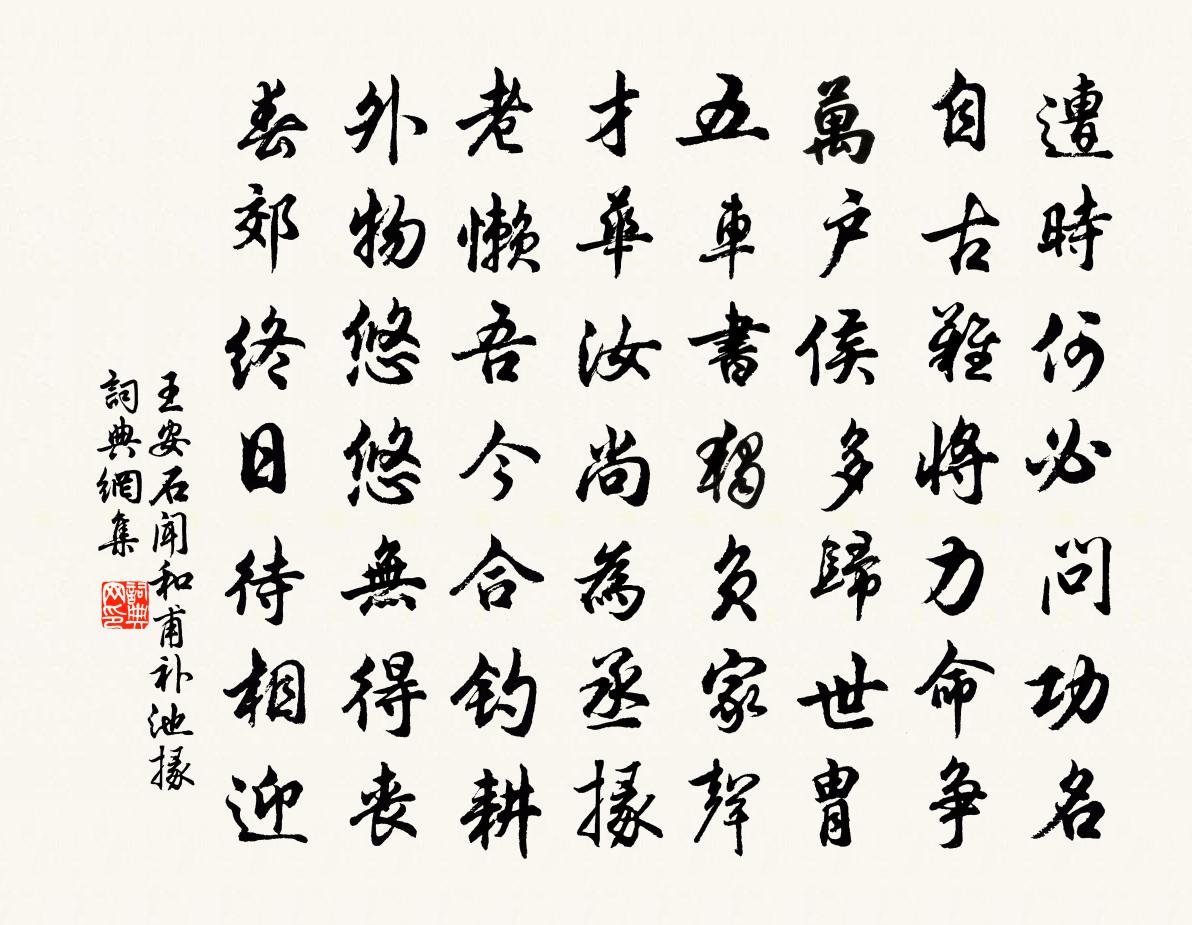 遭時何必問功名
自古難將力命爭
萬戶侯多歸世冑
五車書獨負家聲
才華汝尚為丞掾
老懶吾今合釣耕
外物悠悠無得喪
春郊終日待相迎
王安石聞和甫补池掾
詞典網集
詞典网印